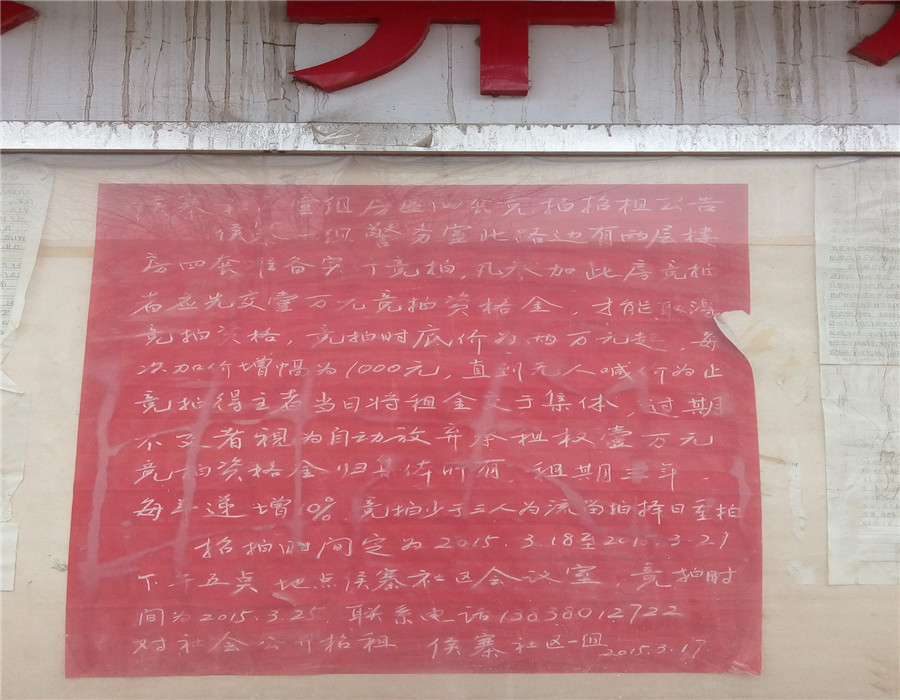 开
侯寨社 壹组房屋 竞拍招租公告
侯寨一组警务室北路边有两层楼
房四套准备实行竞拍,凡参加此房竞拍
者应先交壹万元竞拍资格金,才能取得
竞拍资格,竞拍时底价为两万元起,每
次加价增幅为1000元,直到无人喊价为止
竞拍得主者当日将租金交于集体,过期
不交者视为自动放弃承租权壹万元
竞拍资格金归集体所有,租期三年,
每年递增10%竞拍少于三人为流当拍择日重拍
招拍时间定为2015.3.18至2015.3.21
下午五点地点侯寨社区会议室,竞拍时
间为2015.3.25.联系电话13838012722
对社会公开招租 侯寨社区一组
2015.3.17